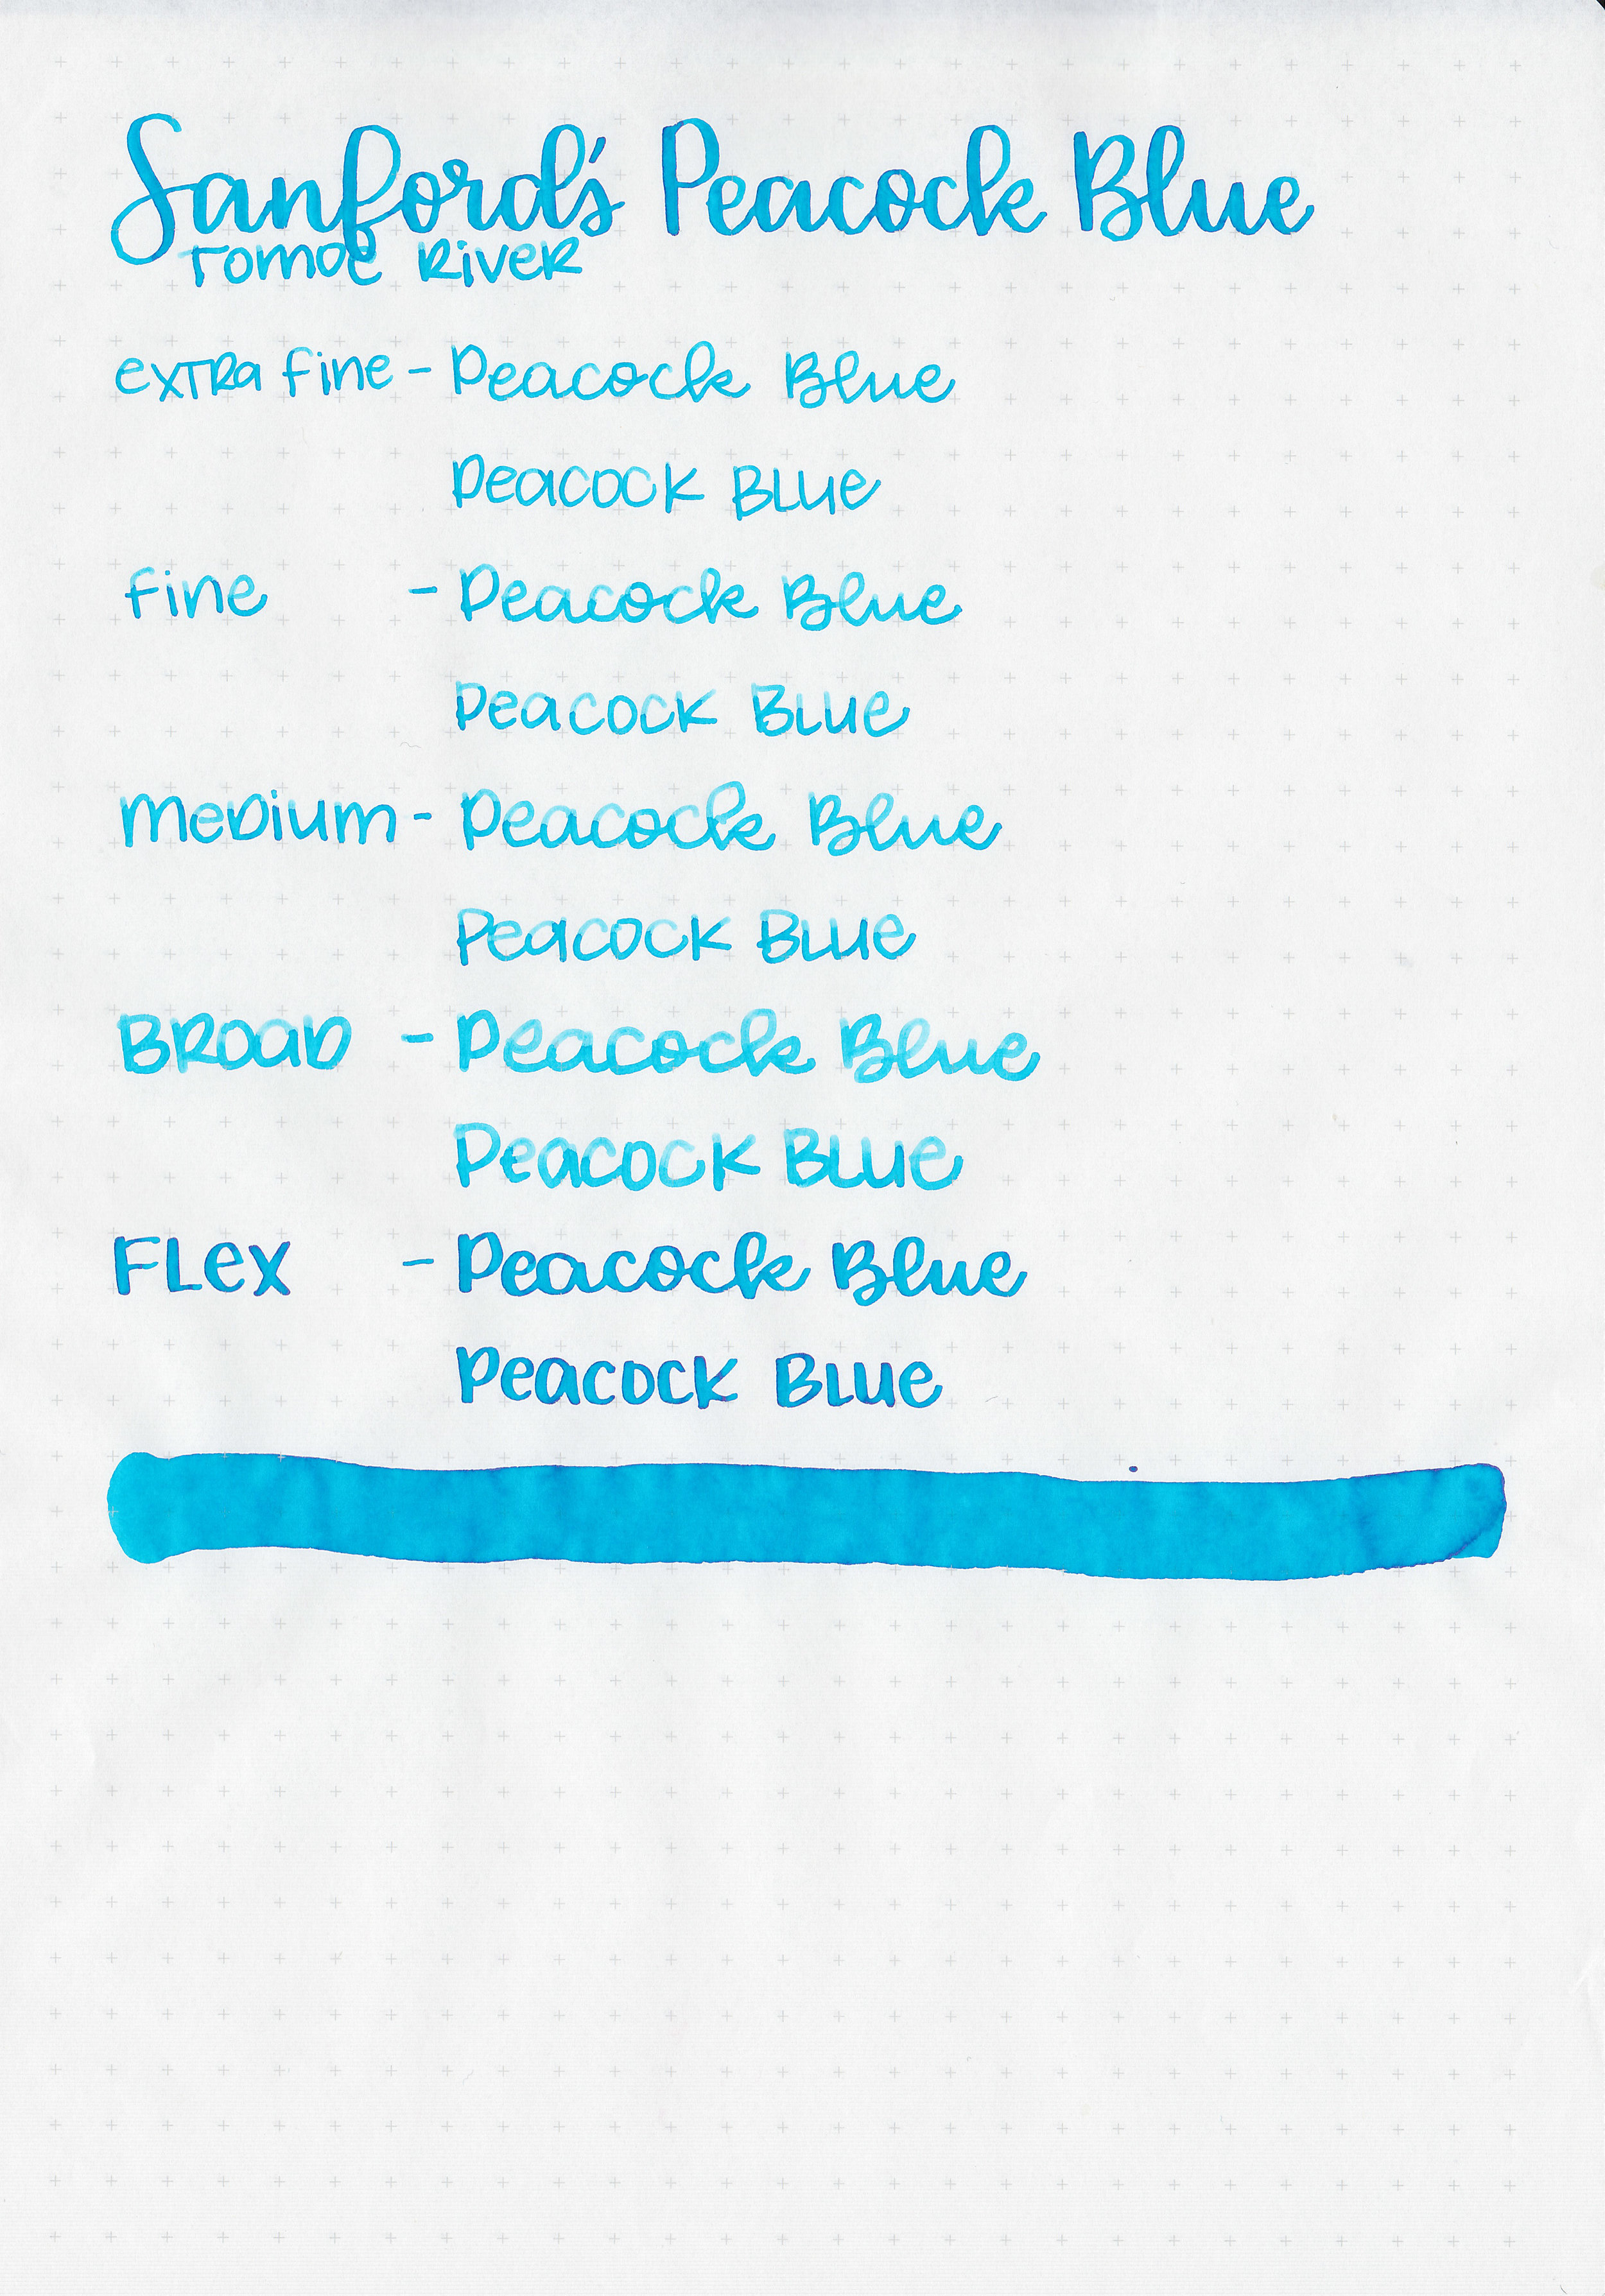 Sanford's Peacock Blue
Tomoe River
extra fine - Peacock Blue
Peacock Blue
fine - Peacock Blue
Peacock Blue
medium - Peacock Blue
Peacock Blue
Broad - Peacock Blue
Peacock Blue
Flex - Peacock Blue
Peacock Blue